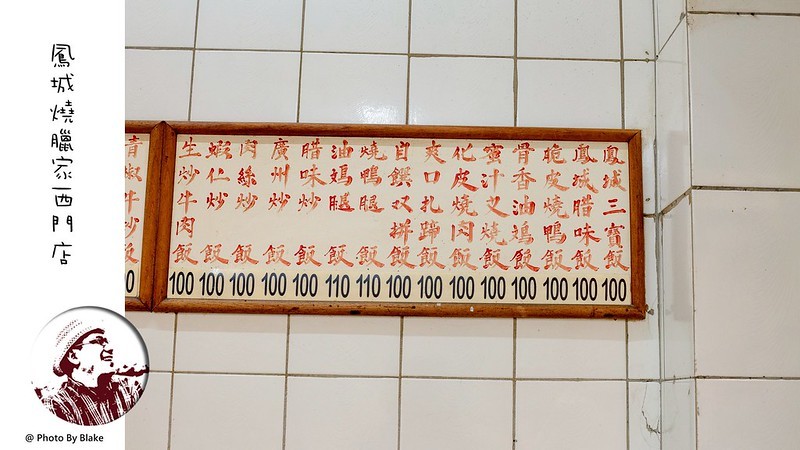 鳳城燒臘家西門店
鳳城三寶飯 100
鳳城腊味飯 100
脆皮燒鴨飯 100
骨香油鳮飯 100
蜜汁叉燒飯 100
化皮燒肉飯 100
爽口扎蹄飯 100
自饌双拼飯 100
燒鴨腿飯 110
油鳮腿飯 110
腊味炒飯 100
廣州炒飯 100
肉絲炒飯 100
蝦仁炒飯 100
生炒牛肉飯 100
青椒牛炒飯 0
@ Photo By Blake